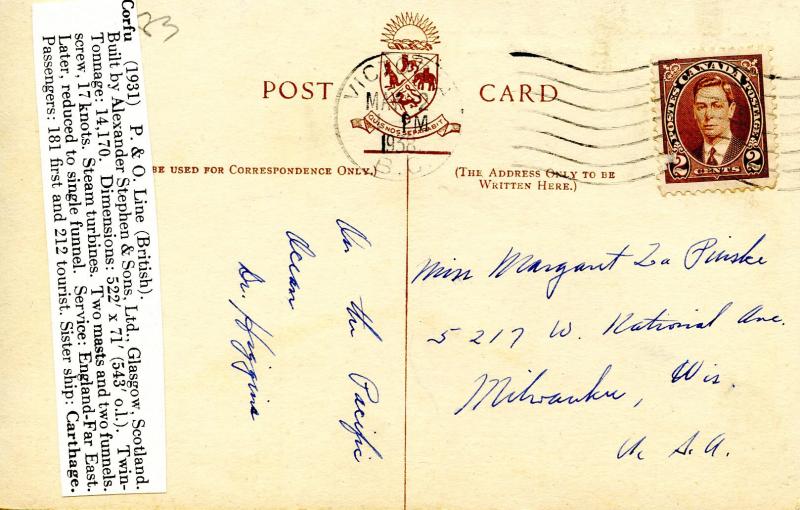 Corfu (1931) P. & O. Line (British).
Built by Alexander Stephen & Sons, Ltd., Glasgow, Scotland.
Tonnage: 14,170. Dimensions: 522' x 71' (543' o.l.). Twin-
screw, 17 knots. Steam turbines. Two masts and two funnels.
Later, reduced to single funnel. Service: England-Far East.
Passengers: 181 first and 212 tourist. Sister ship: Carthage.
33
POST CARD
QUIS NOS SEPARABIT
1 PM
1938
B.C.
POSTES CANADA POSTAGE
2 CENTS 2
BE USED FOR CORRESPONDENCE ONLY.)
(THE ADDRESS ONLY TO BE
WRITTEN HERE.)
On the Pacific
Ocean
Dr. Higgins
Miss Margaret La Pinske
5217 W. National Ave.
Milwaukee, Wis.
U. S. A.